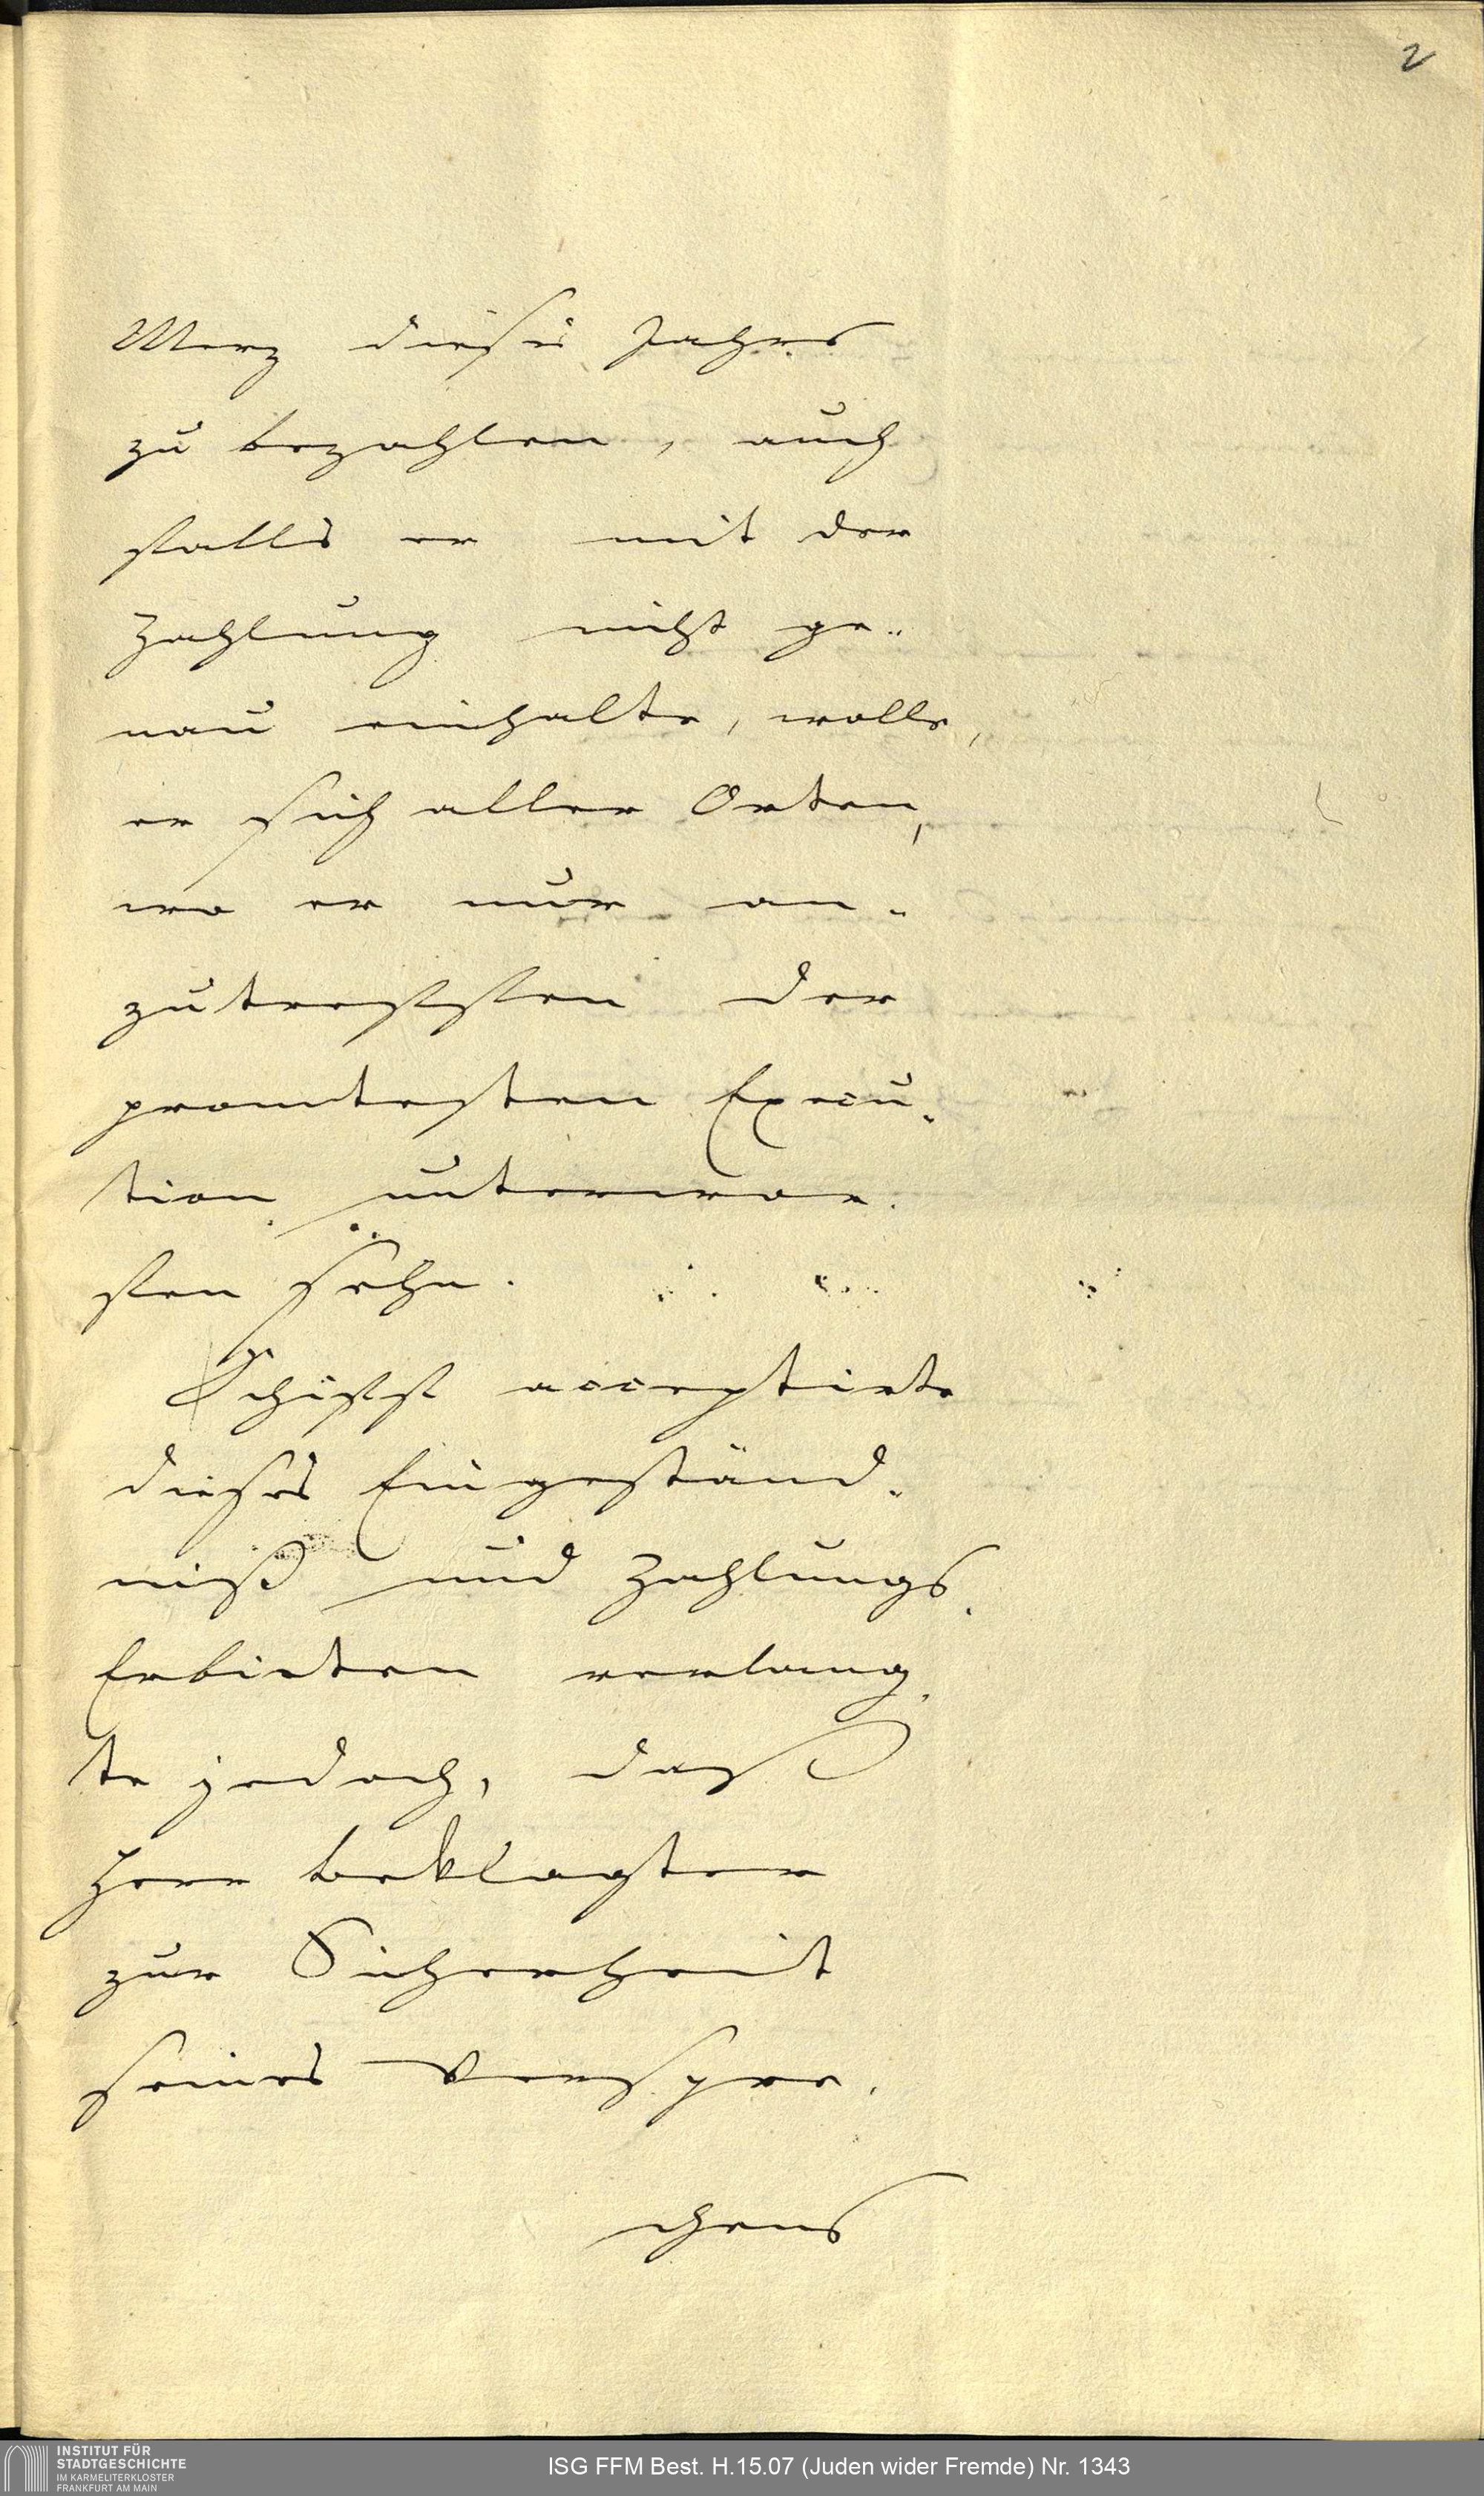 2
Merz dieses Jahres
zu bezahlen, auch
falls er mit der
Zahlung nicht ge-
nau einhalte, wolle,
er sich aller Orten,
wo er nur an-
zutreffen der
promtesten Execu-
tion unterwor-
fen sehn.
Schiff acceptirte
dieses Eingeständ-
niß und Zahlungs-
Erbieten verlang-
te jedoch, daß
Herr beklagter
zur Sicherheit
seines Verspre-
chens
INSTITUT FÜR
STADTGESCHICHTE
IM KARMELITERKLOSTER
FRANKFURT AM MAIN
ISG FFM Best. H.15.07 (Juden wider Fremde) Nr. 1343